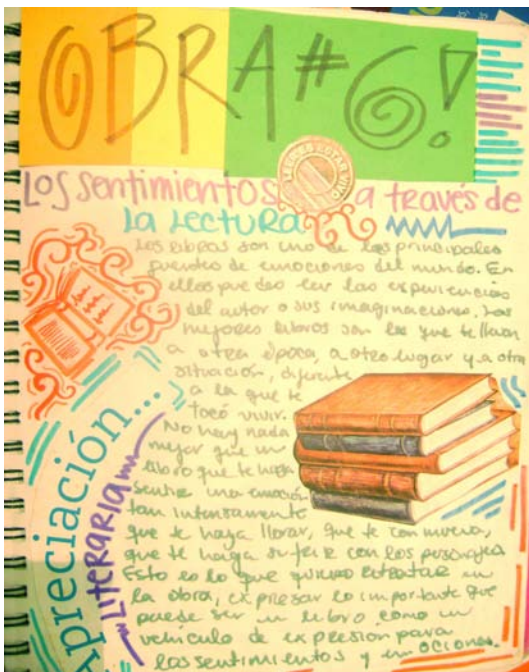 OBRA#6!
Los sentimientos a través de
la lectura
Los libros son uno de los principales
puentes de emociones del mundo. En
ellos puedes leer las experiencias
del autor o sus imaginaciones. Los
mejores libros son los que te llevan
a otra época, a otro lugar y a otra
situación, diferente
a la que te
tocó vivir.
No hay nada
mejor que un
libro que te haga
sentir una emoción
tan intensamente
que te haga llorar, que te conmueva,
que te haga sufrir con los personajes
Esto es lo que quiero retratar en
la obra, expresar lo importante que
puede ser un libro como un
vehículo de expresión para
los sentimientos y emociones.
Apreciación...
Literaria